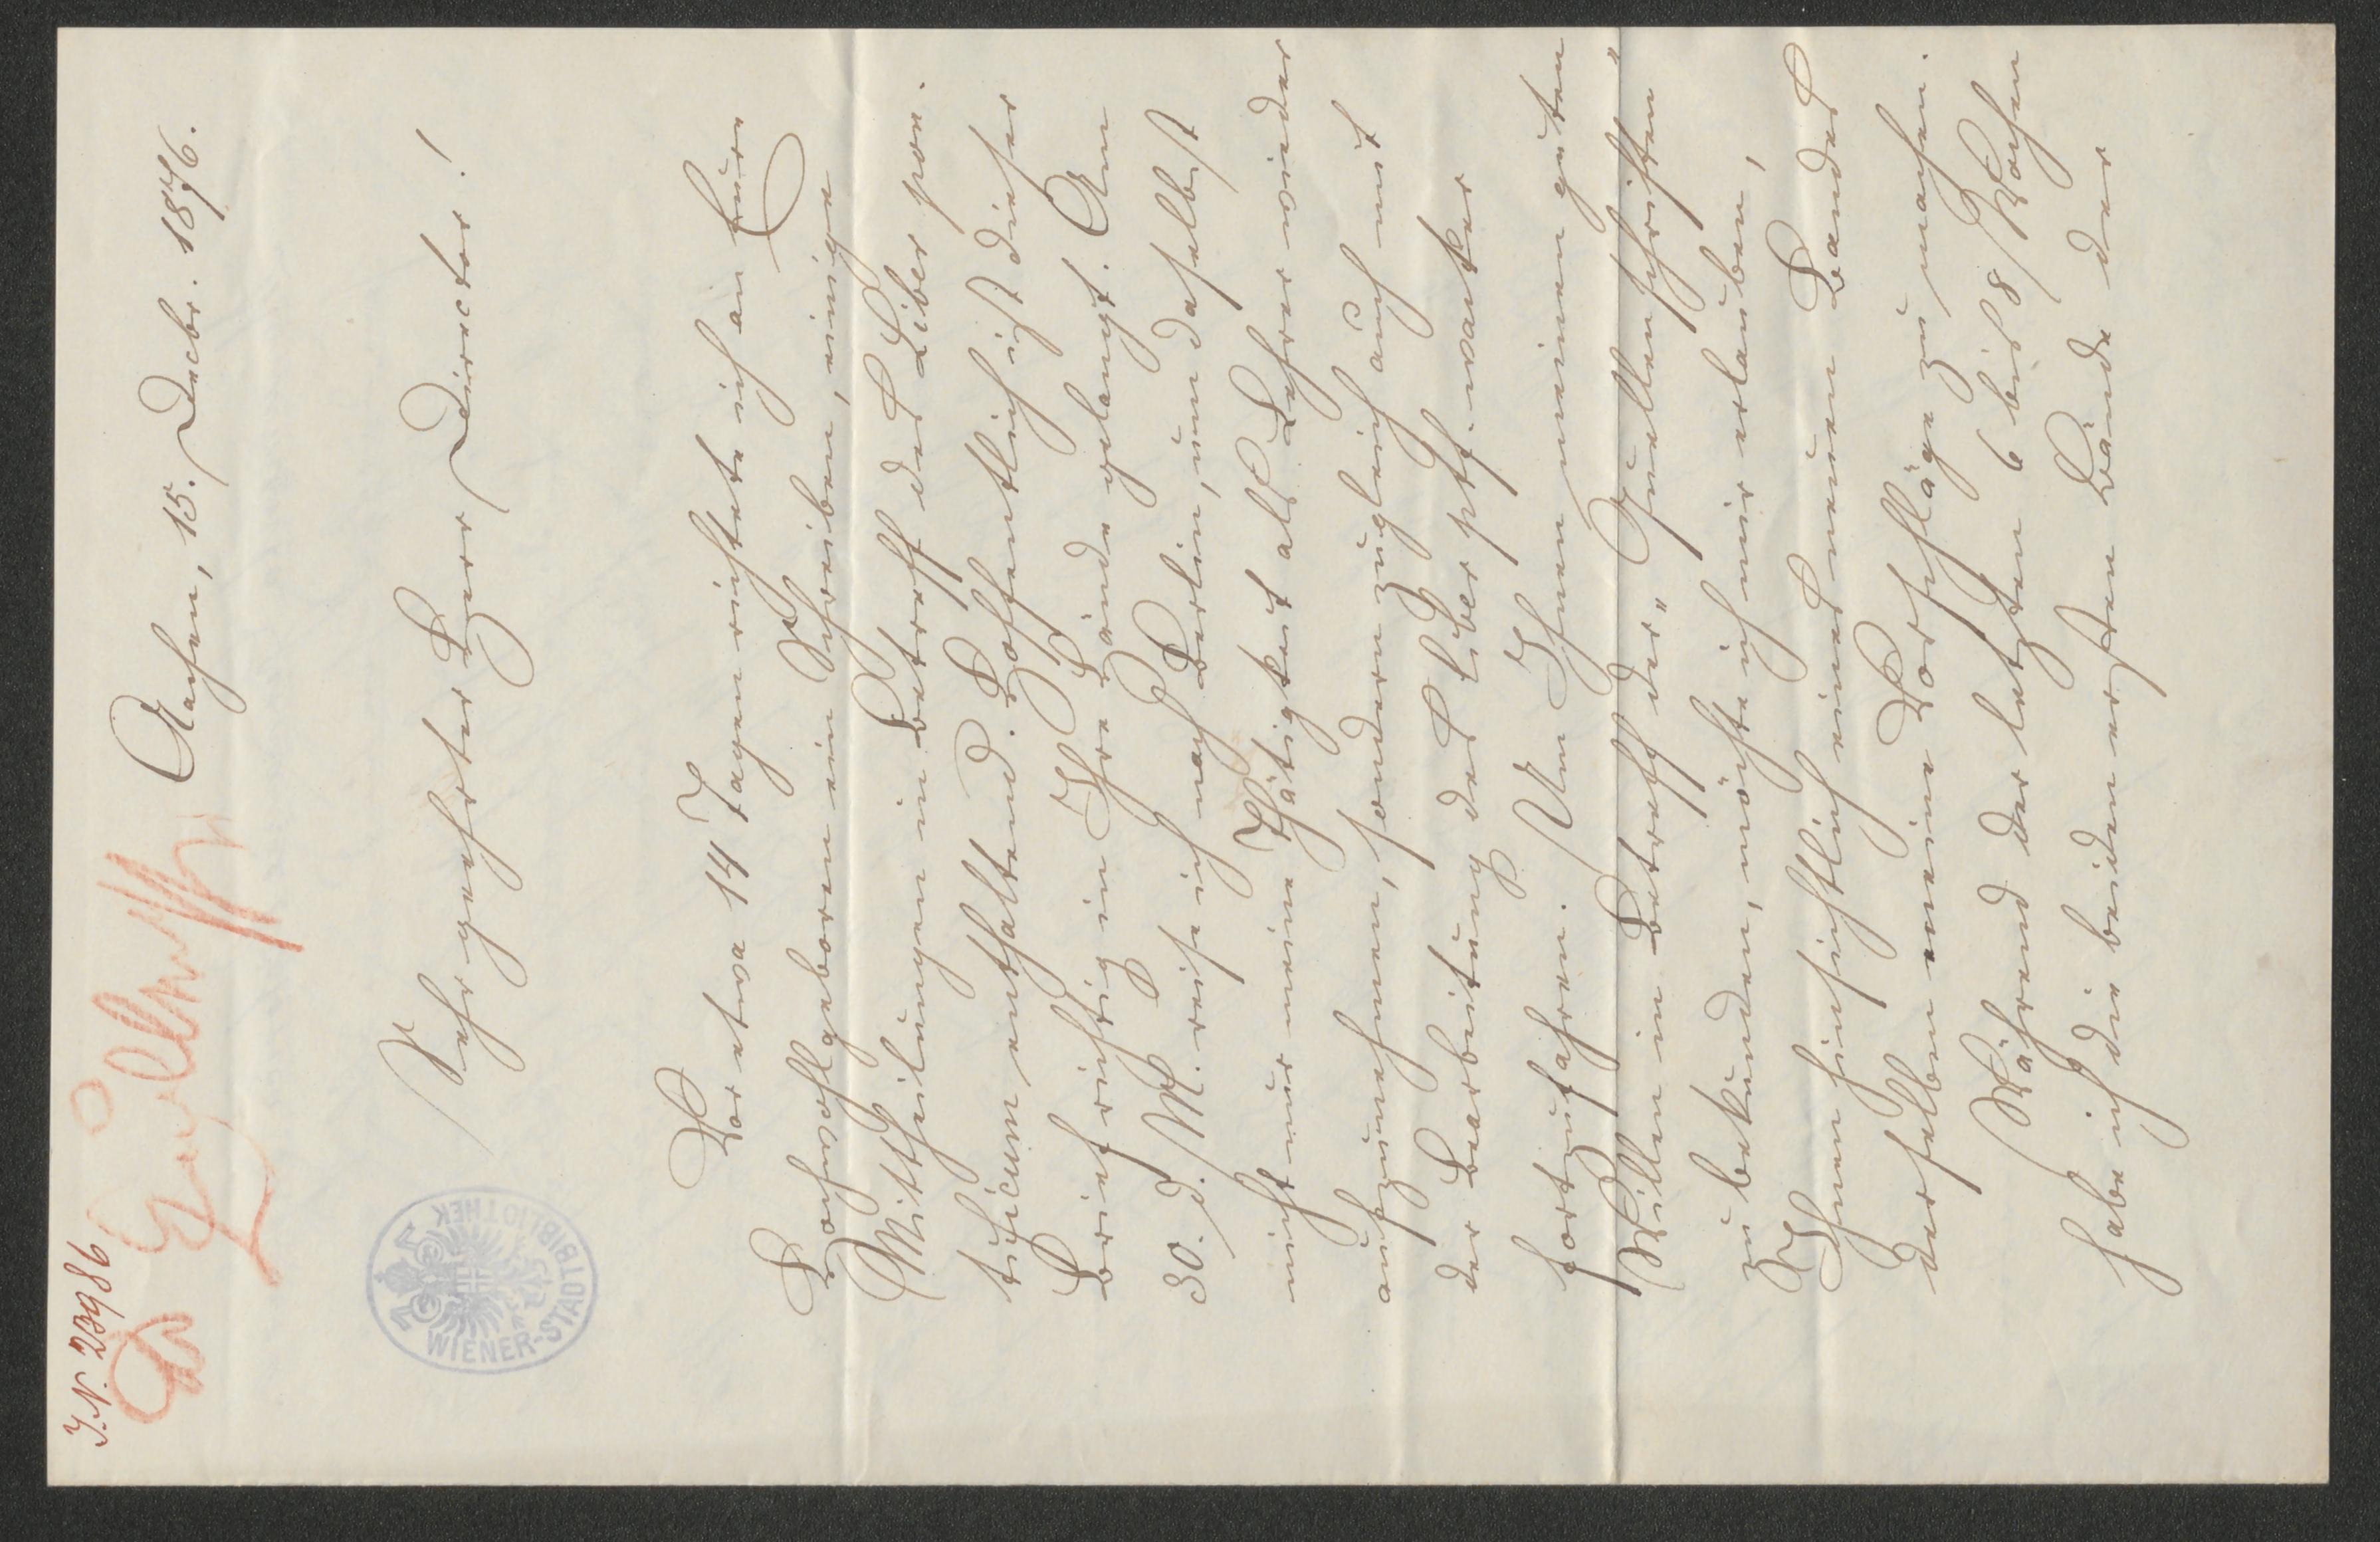 I.N. 23986
Aachen, 15. Decbr. 1876.
WIENER-STADTBIBLIOTHEK
Sehr geehrter Herr Director!
Vor etwa 14 Tagen richtete ich an Eure
Hochwohlgeboren ein Schreiben, einige
Mittheilungen in Betreff des Liber pon-
tificum enthaltend. Hoffentlich ist dieser
Brief richtig in Ihre Hände gelangt. Am
30. d. M. reise ich nach Berlin, um daselbst
nicht nur meine Thätigkeit als Lehrer wieder
aufzunehmen, sondern zugleich auch mit
der Bearbeitung des liber ptf. wacker
fortzufahren. Um Ihnen meinen guten
Willen in Betreff der „Quellenschriften"
zu bekunden, möchte ich mir erlauben,
Ihnen hinsichtlich eines neuen Bandes
derselben meine Vorschläge zu machen.
Während der letzten 6 bis 8 Wochen
habe ich die beiden ersten Bände der